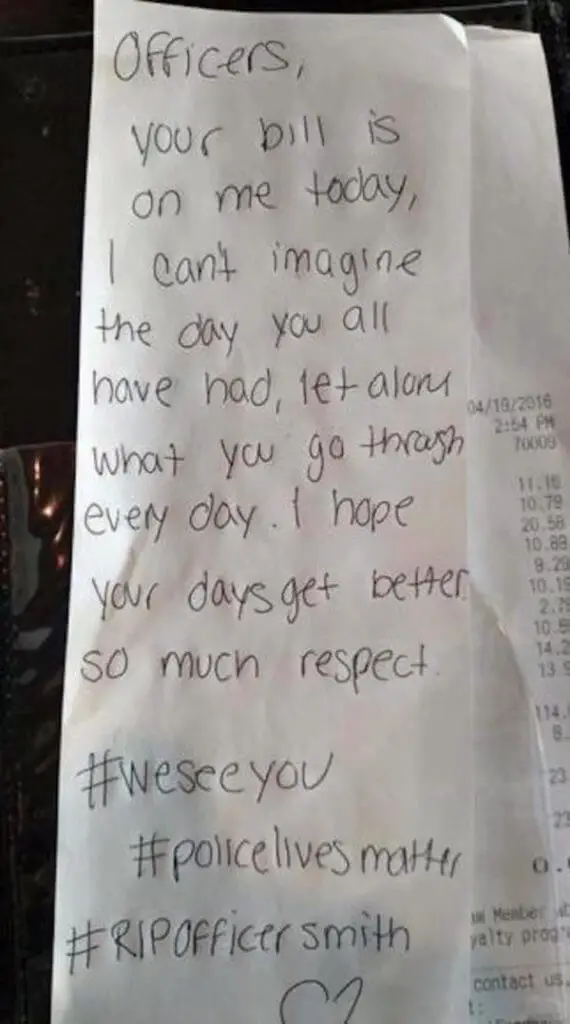 Officers,
your bill is
on me today,
I can't imagine
the day you all
have had, let alone
what you go through
every day. I hope
your days get better
so much respect.
#weseeyou
#policelivesmatter
#RIPOfficersmith
04/19/2016
2:54 PM
70009
11.16
10.79
20.58
10.89
9.29
10.19
2.79
14.2
13.9
114.
8.
23
23
0.
Member
yalty progra
contact us.